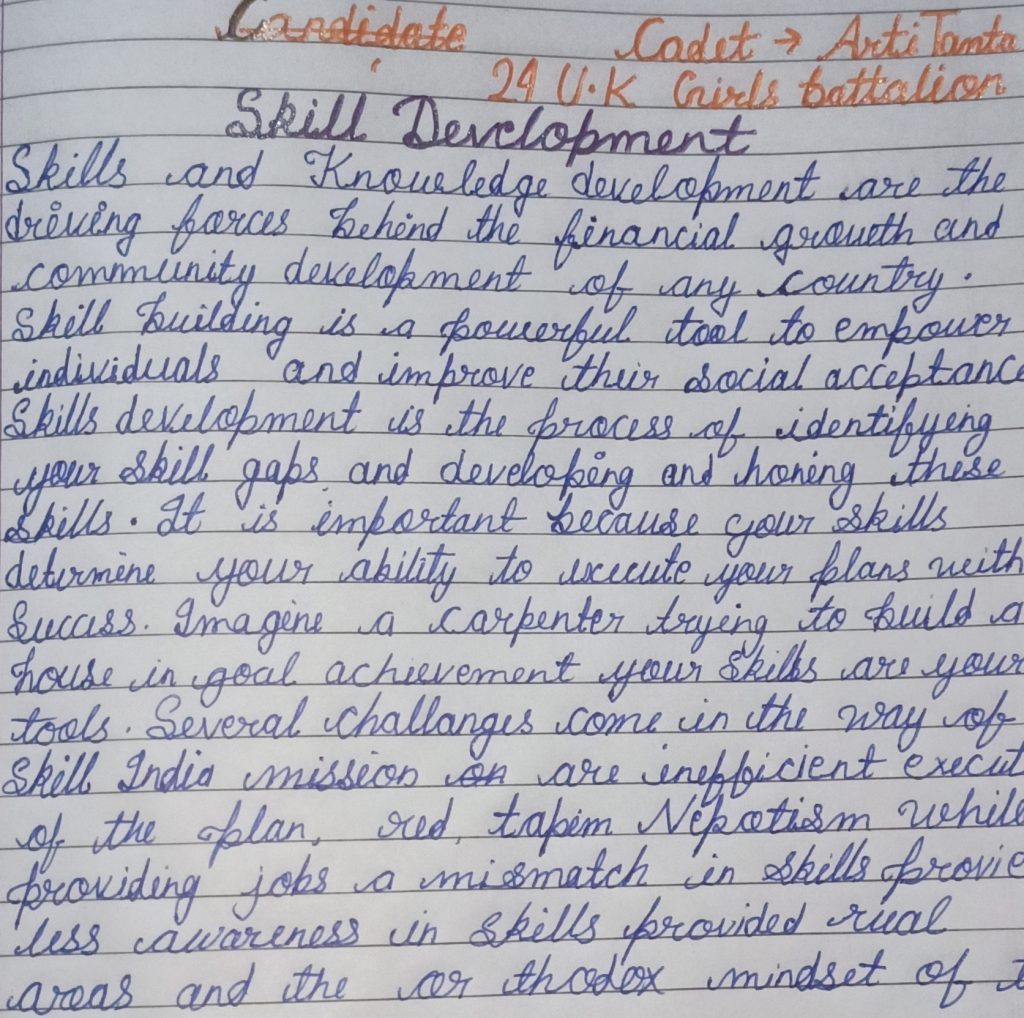 Candidate Cadet → Arti Tamta
24 U.K Girls battalion
Skill Development
Skills and Knowledge development are the
driving forces behind the financial growth and
community development of any country.
Skill building is a powerful tool to empower
individuals and improve their social acceptance
Skills development is the process of identifying
your skill gaps and developing and honing these
skills. It is important because your skills
determine your ability to execute your plans with
success. Imagine a carpenter trying to build a
house in goal achievement your skills are your
tools. Several challanges come in the way of
Skill India mission on are inefficient execut
of the plan, red, tapim Nepotism while
providing jobs a mismatch in skills provie
less awareness in skills provided rual
areas and the or thodox mindset of